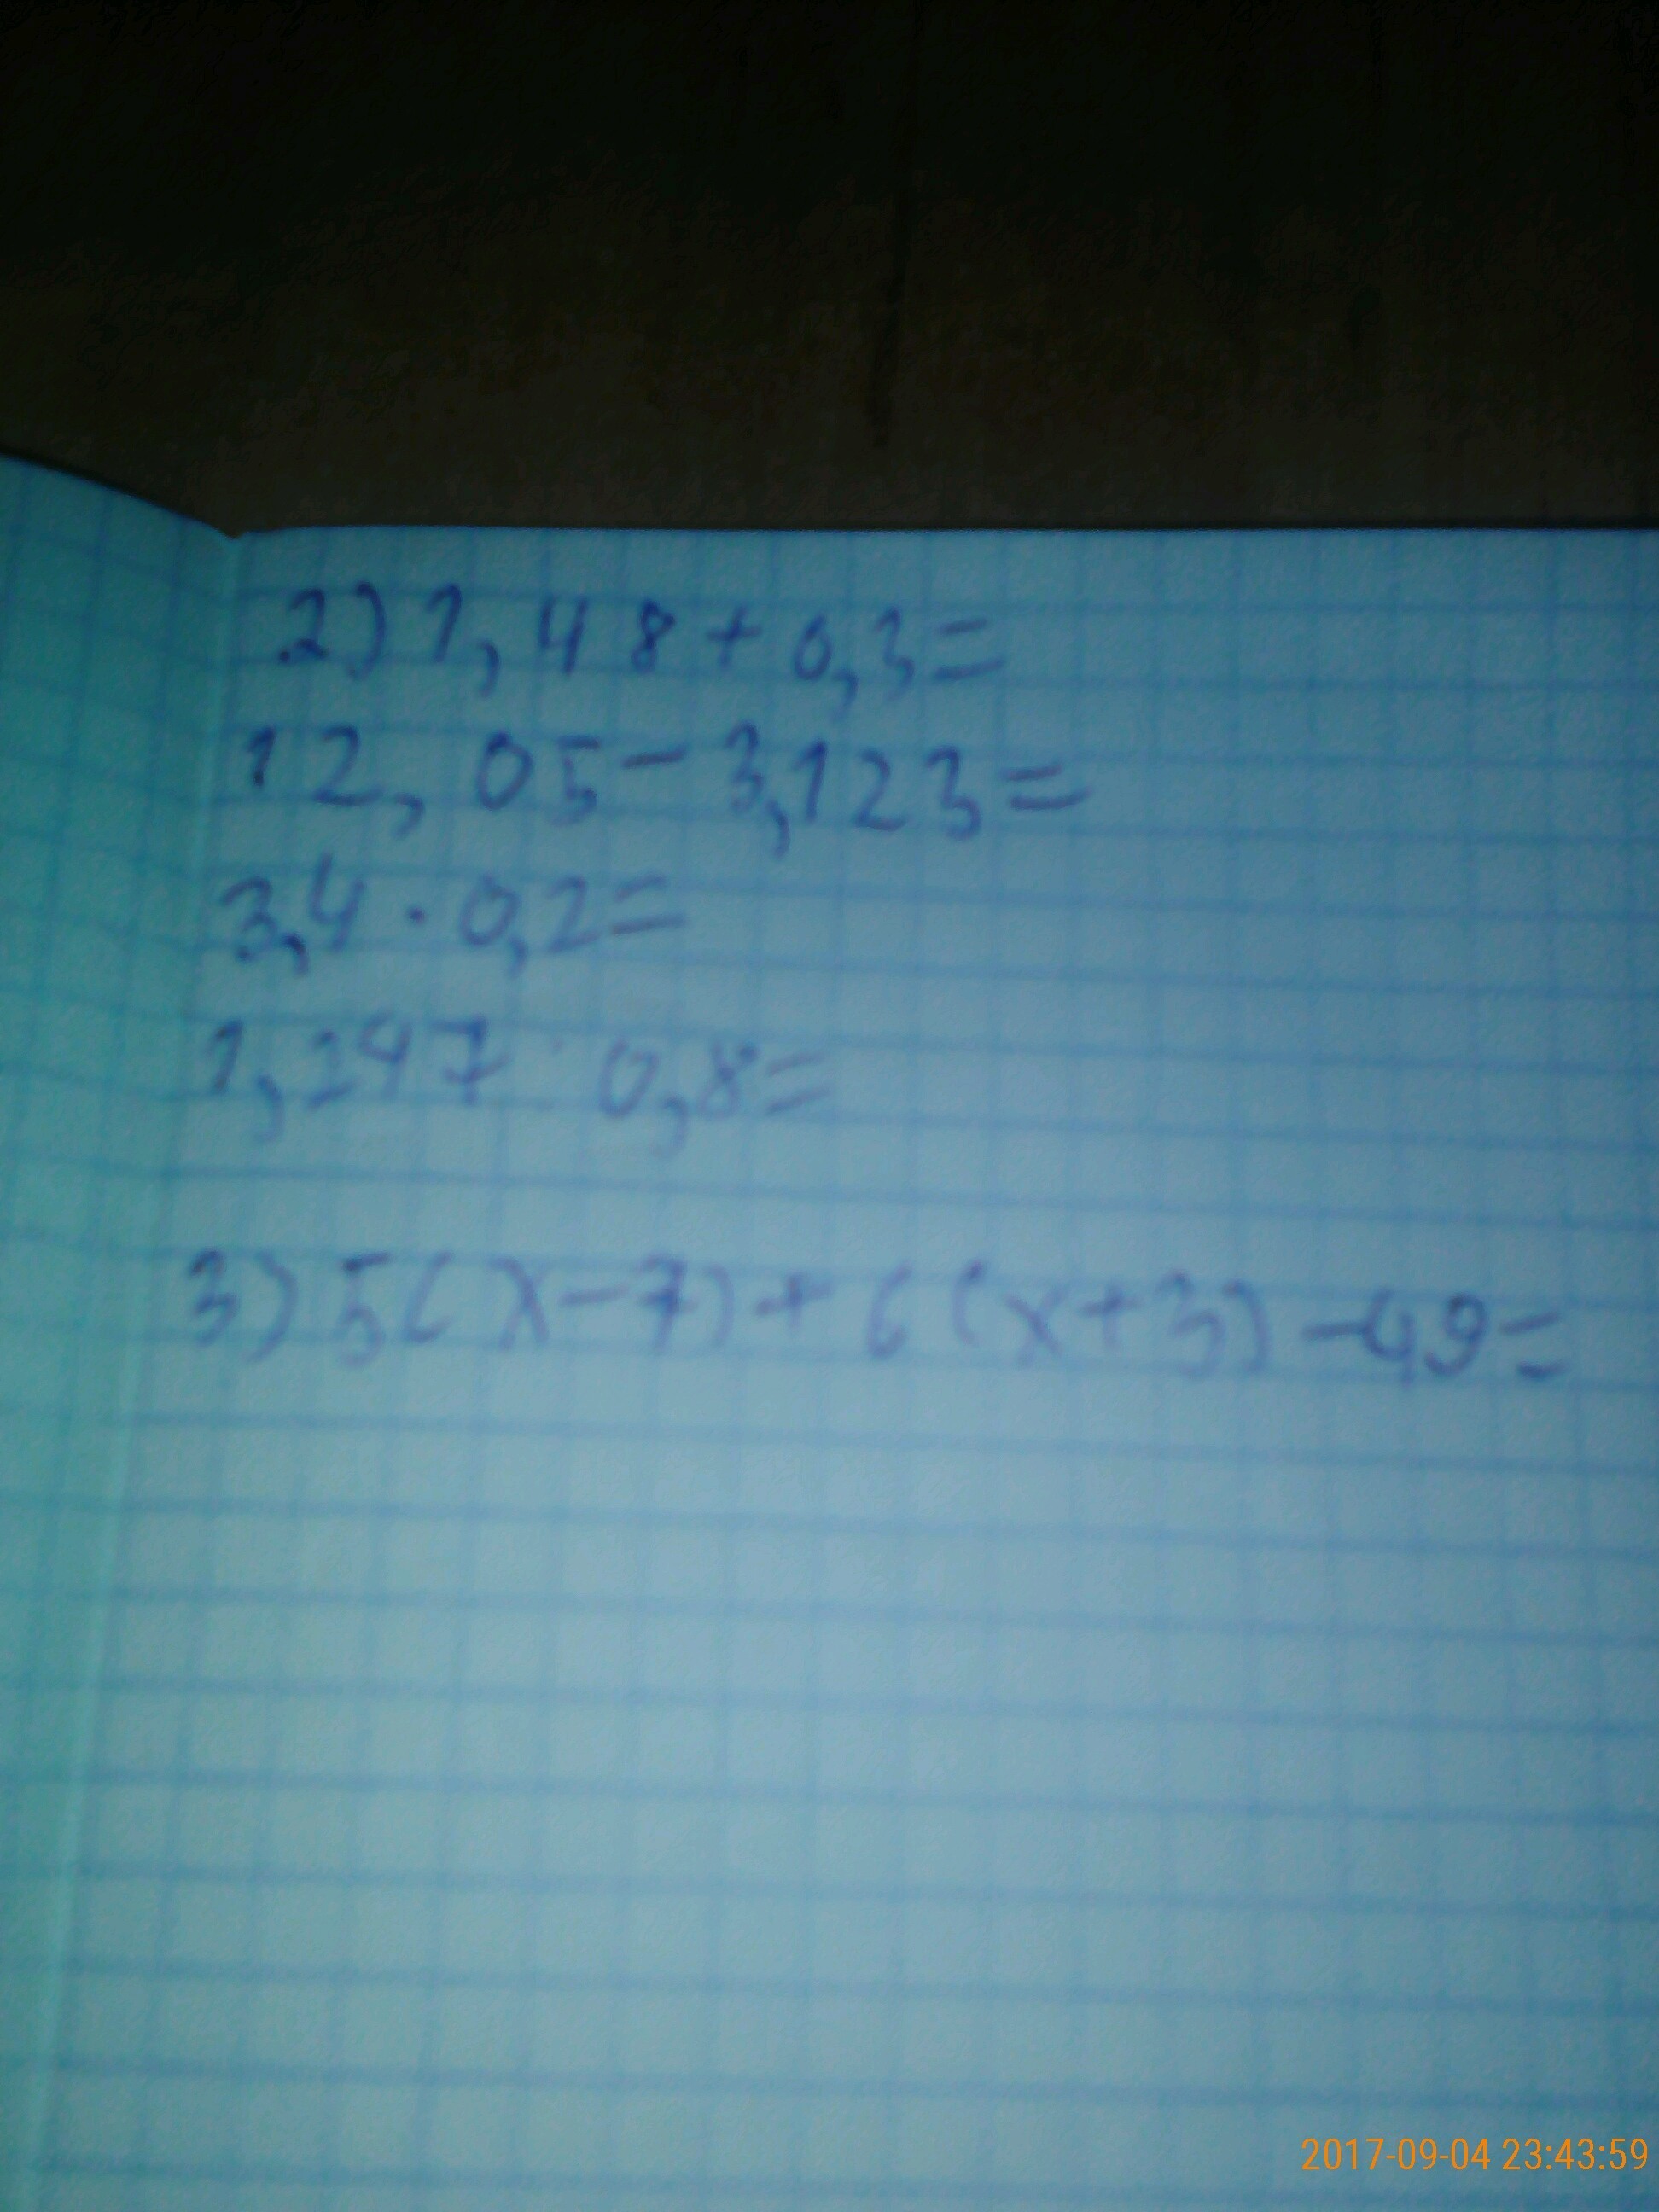 2) 1,48+0,3=
12,05-3,123=
3,4·0,2=
1,247·0,8=
3) 5(x-7)+6(x+3)-49=
2017-09-04 23:43:59